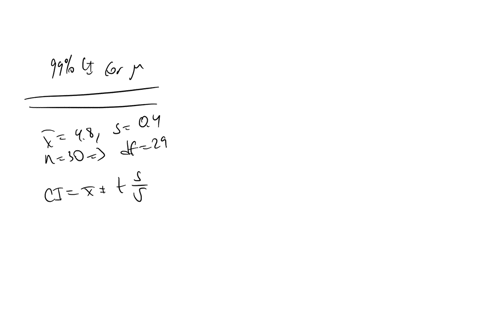 99% CI for μ
x̄ = 4.8, s = 0.4
n = 30 => df = 29
CI = x̄ ± t s/√